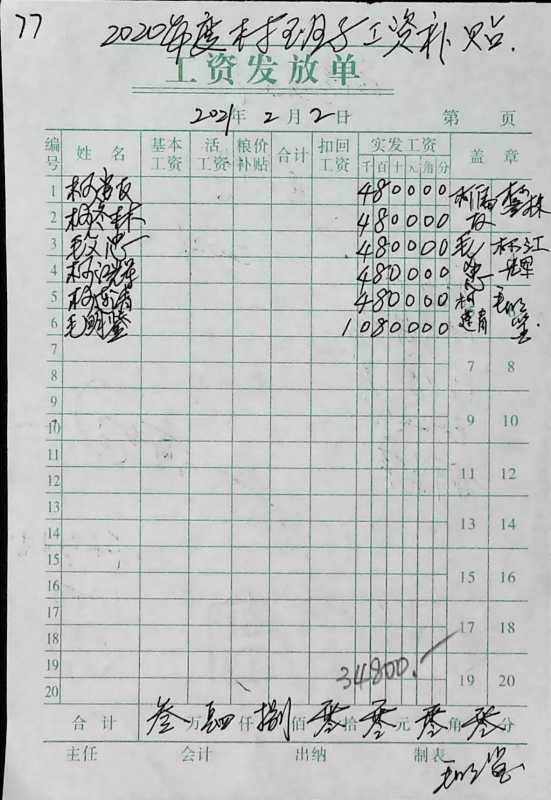 77
2020年度村班子工资补贴.
工资发放单
2021年2月2日 第 页
编号 姓名 基本工资 活工资 粮价补贴 合计 扣回工资 实发工资 盖章
千 百 十 元 角 分
1 480000
2 柯冬林 480000
3 毛文忠 480000
4 柯江辉 480000
5 柯建清 480000
6 毛明鉴 1080000
7 7 8
8
9 9 10
10
11 11 12
12
13 13 14
14
15 15 16
16
17 17 18
18
19 34800.- 19 20
20
合计 叁万肆仟捌佰零拾零元零角零分
主任 会计 出纳 制表